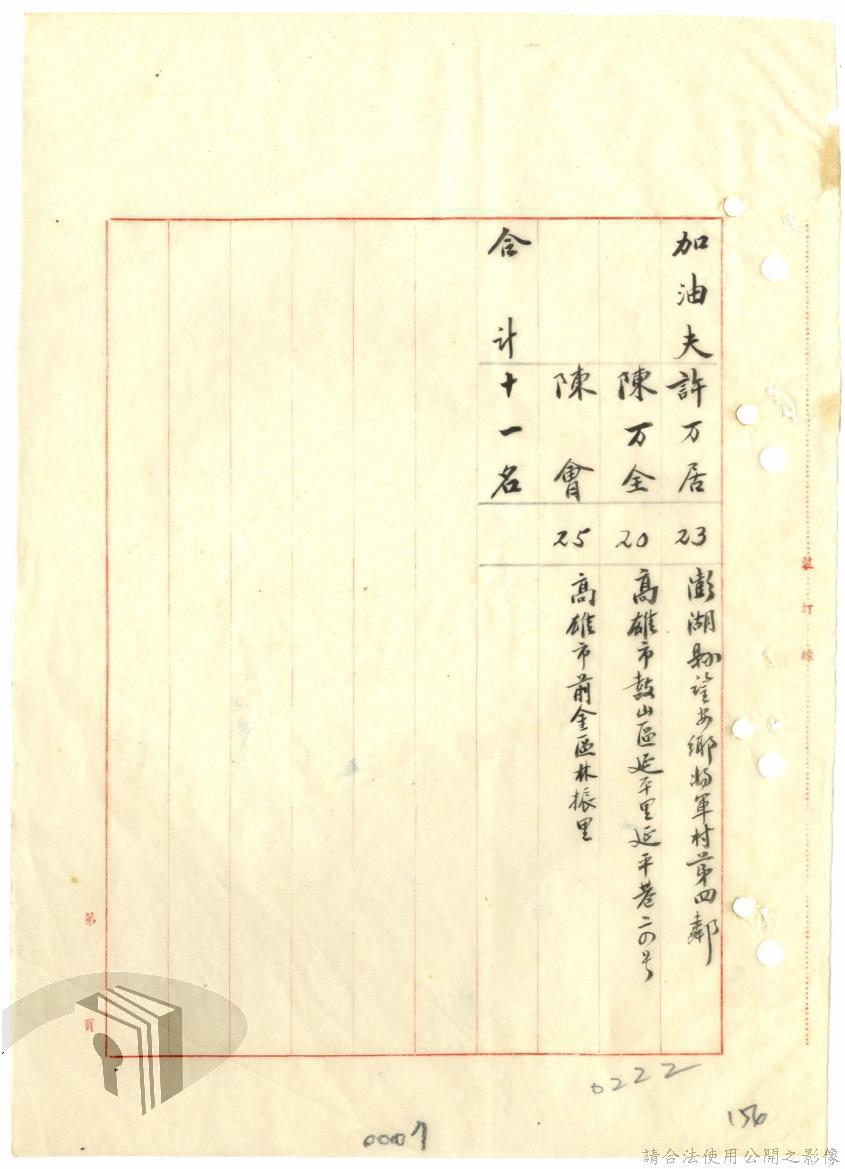 加油夫 許万居 23 澎湖縣望安鄉將軍村第四鄰
陳万全 20 高雄市鼓山區延平里延平巷二四号
陳會 25 高雄市前金區林振里
合計 十一名
裝訂線
第 頁
0222
156
請合法使用公開之影像